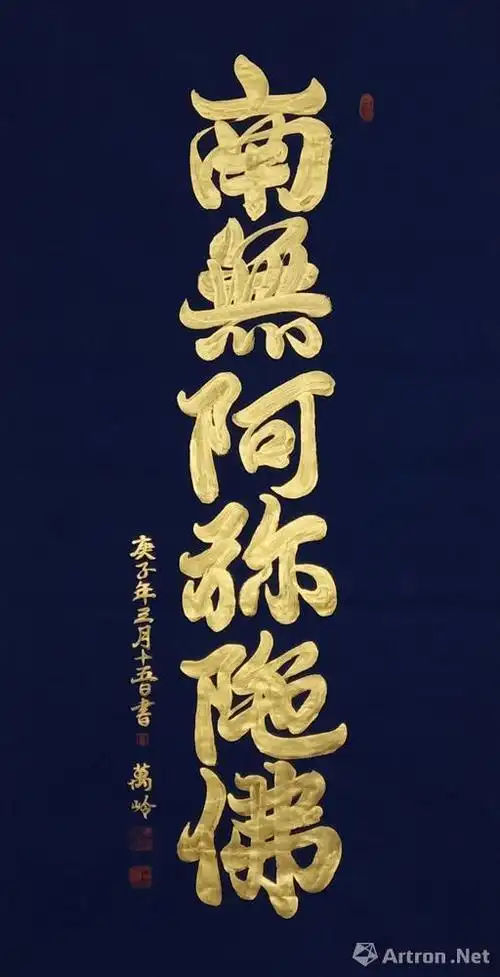 南無阿弥陀佛
庚子年三月十五日書
萬岭
Artron.Net